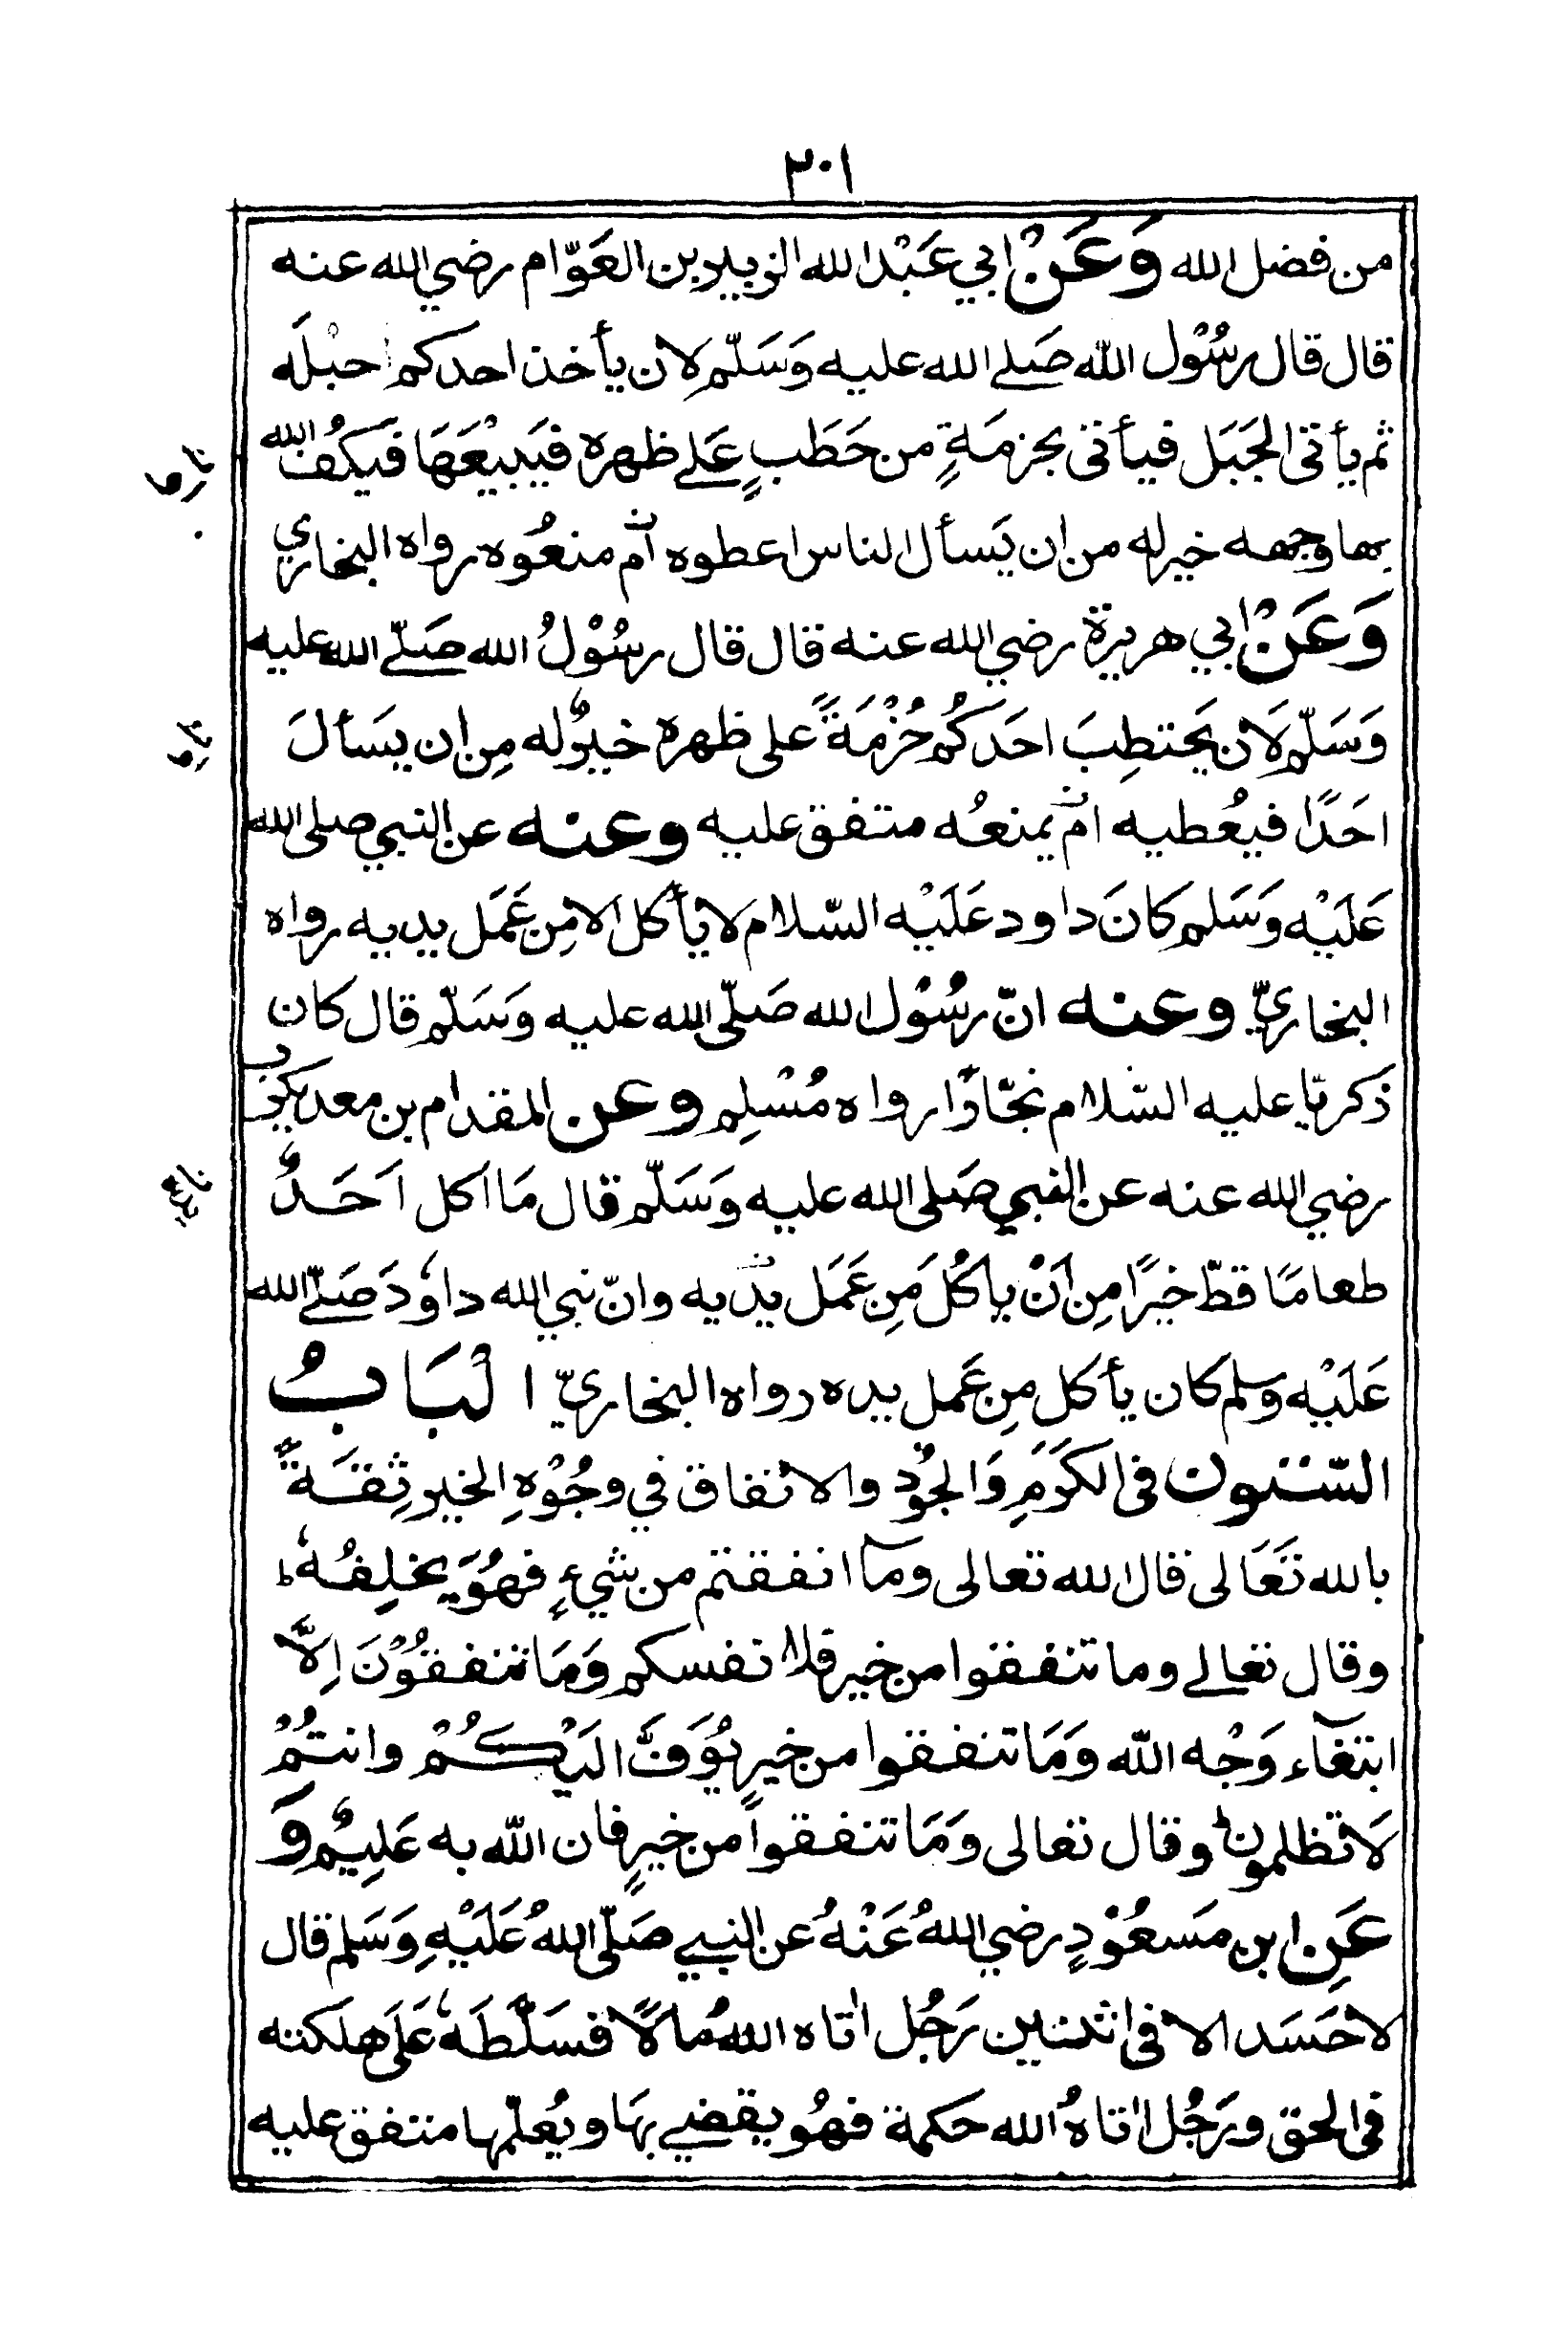 ٣٠١
من فضل الله وَعَنْ ابي عَبْد الله الزبير بن العَوّام رضي الله عنه
قال قال رسُوْل الله صَلے الله عليه وَسَلّم لان يأخذ احدكم احبْلَه
ثم يأتى الجَبَل فيأتى بحزمَةٍ من حَطَبٍ عَلے ظهره فيَبيْعَهَا فيَكُفّ الله
بها وجهه خير له من ان يَسأل الناس اعطوه أم منعُوه رواه البخاري
وَعَنْ ابي هريرة رضي الله عنه قال قال رسُوْلُ الله صَلّے الله عليه
وَسَلّم لَان يَحتطِبَ احَدكُم حُزْمَةً على ظهره خيرٌ له مِن ان يسَألَ
احَدًا فيعُطيه ام يمنعُه متفق عليه وعنه عن النبي صلى الله
عَلَيْه وَسَلم كانَ داود عَلَيْه السّلام لا يأكل الا مِن عَمَل يديه رواه
البخاريّ وعنه انّ رسُوْل الله صَلّى الله عليه وَسَلّم قال كان
زكريّا عليه السّلام نجّارًا رواه مُسْلِم وعن المقدام بن معد يكرب
رضي الله عنه عن النبي صَلى الله عليه وَسَلّم قال مَا اكل اَحَدٌ
طعامًا قطّ خيرًا مِن اَنْ ياكُلَ مِن عَمَل يدَيه وانّ نبي الله داوٗدَ صَلّے الله
عَلَيْه وسلم كان يأكل مِن عَمل يده رواه البخاريّ الْبَابُ
السّتون فى الكَرَمِ وَالجُوْدِ والانفاق في وجُوْهِ الخير ثِقَةً
بالله تَعَالى قال الله تعالى وما انفقتم من شيءٍ فهُوَ يخلِفُهٗ ط
وقال تعالے وما تنفقوا من خير فلانفسكم وَمَا تنفقُوْنَ اِلّا
ابتغآء وَجْه الله وَمَا تنفقوا من خيرٍ يُوَفَّ اليَْكُمْ وانتُمْ
لَا تظلمون ط وقال تعالى وَمَا تنفقوا من خيرٍ فان الله به عَلِيمٌ وَ
عَنِ ابن مَسعُوْدٍ رضي اللهُ عَنْهُ عن النبي صَلّى اللهُ عَلَيْهِ وَسَلم قال
لا حَسَد الا فى اثنتين رَجُل اٰتاه اللهُ مالًا فسَلّطَهٗ عَلَى هلَكته
فى الحق ورَجُل اٰتاهُ الله حكمة فهُو يقضے بهَا ويُعلّمها متفق عليه